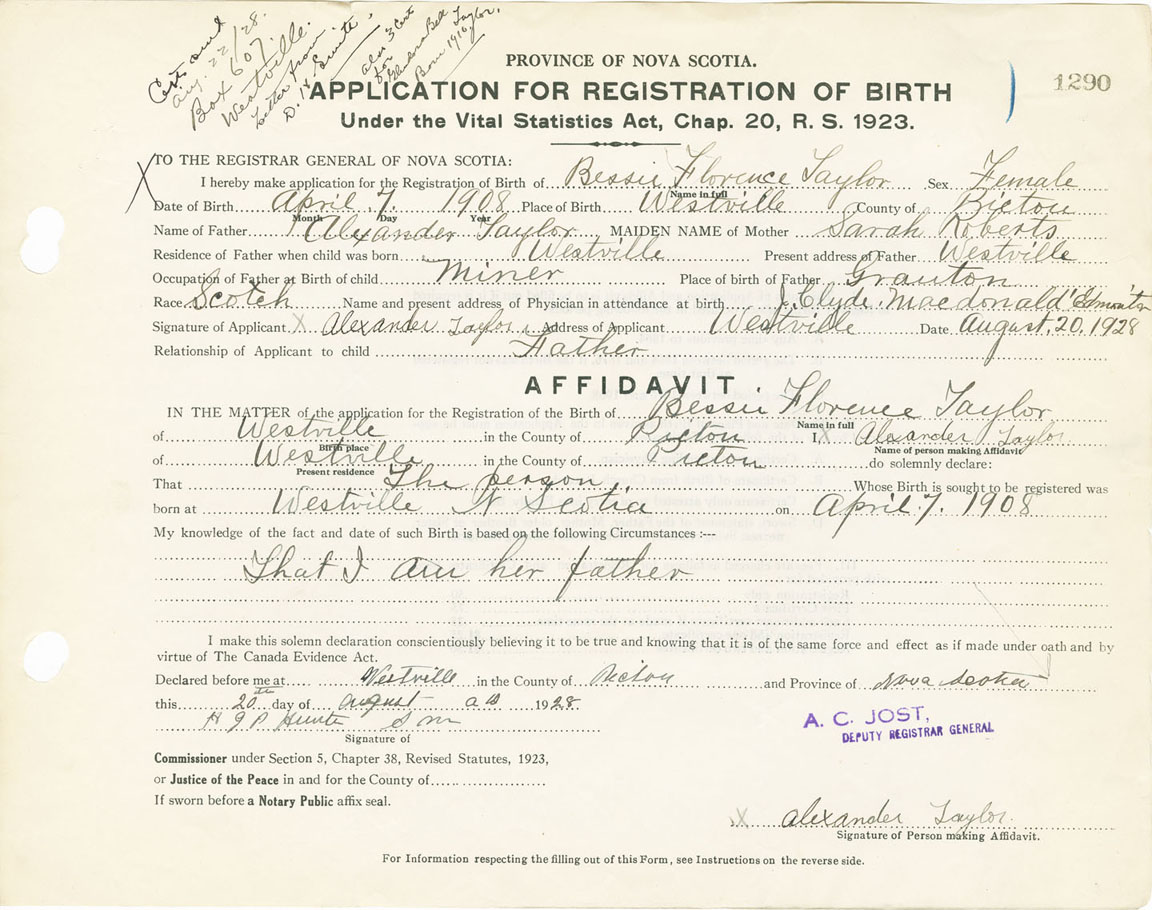 Cert and
Aug. 22/28.
Box 607.
Westville.
Letter from
D. H.
also 3 Cert
for
Bell Taylor,
Born 1910
PROVINCE OF NOVA SCOTIA.
1290
APPLICATION FOR REGISTRATION OF BIRTH
Under the Vital Statistics Act, Chap. 20, R. S. 1923.
X TO THE REGISTRAR GENERAL OF NOVA SCOTIA:
I hereby make application for the Registration of Birth of Bessie Florence Taylor Sex Female
Name in full
Date of Birth April 7. 1908 Place of Birth Westville County of Picton
Month Day Year
Name of Father Alexander Taylor MAIDEN NAME of Mother Sarah Roberts
Residence of Father when child was born Westville Present address of Father Westville
Occupation of Father at Birth of child Miner Place of birth of Father Granton
Race Scotch Name and present address of Physician in attendance at birth J. Clyde. Macdonald Edmonton
Signature of Applicant X Alexander Taylor Address of Applicant Westville Date August. 20. 1928
Relationship of Applicant to child Father
AFFIDAVIT.
IN THE MATTER of the application for the Registration of the Birth of Bessie Florence Taylor
Name in full
of Westville in the County of Picton I, X Alexander Taylor
Birth place Name of person making Affidavit
of Westville in the County of Picton do solemnly declare:
Present residence
That The person Whose Birth is sought to be registered was
born at Westville N Scotia on April. 7. 1908
My knowledge of the fact and date of such Birth is based on the following Circumstances :---
That I am her father
I make this solemn declaration conscientiously believing it to be true and knowing that it is of the same force and effect as if made under oath and by
virtue of The Canada Evidence Act.
Declared before me at Westville in the County of Picton and Province of Nova Scotia
this 20th day of August AD 1928
A. C. JOST,
DEPUTY REGISTRAR GENERAL
Signature of
Commissioner under Section 5, Chapter 38, Revised Statutes, 1923,
or Justice of the Peace in and for the County of
If sworn before a Notary Public affix seal.
X Alexander Taylor.
Signature of Person making Affidavit.
For Information respecting the filling out of this Form, see Instructions on the reverse side.